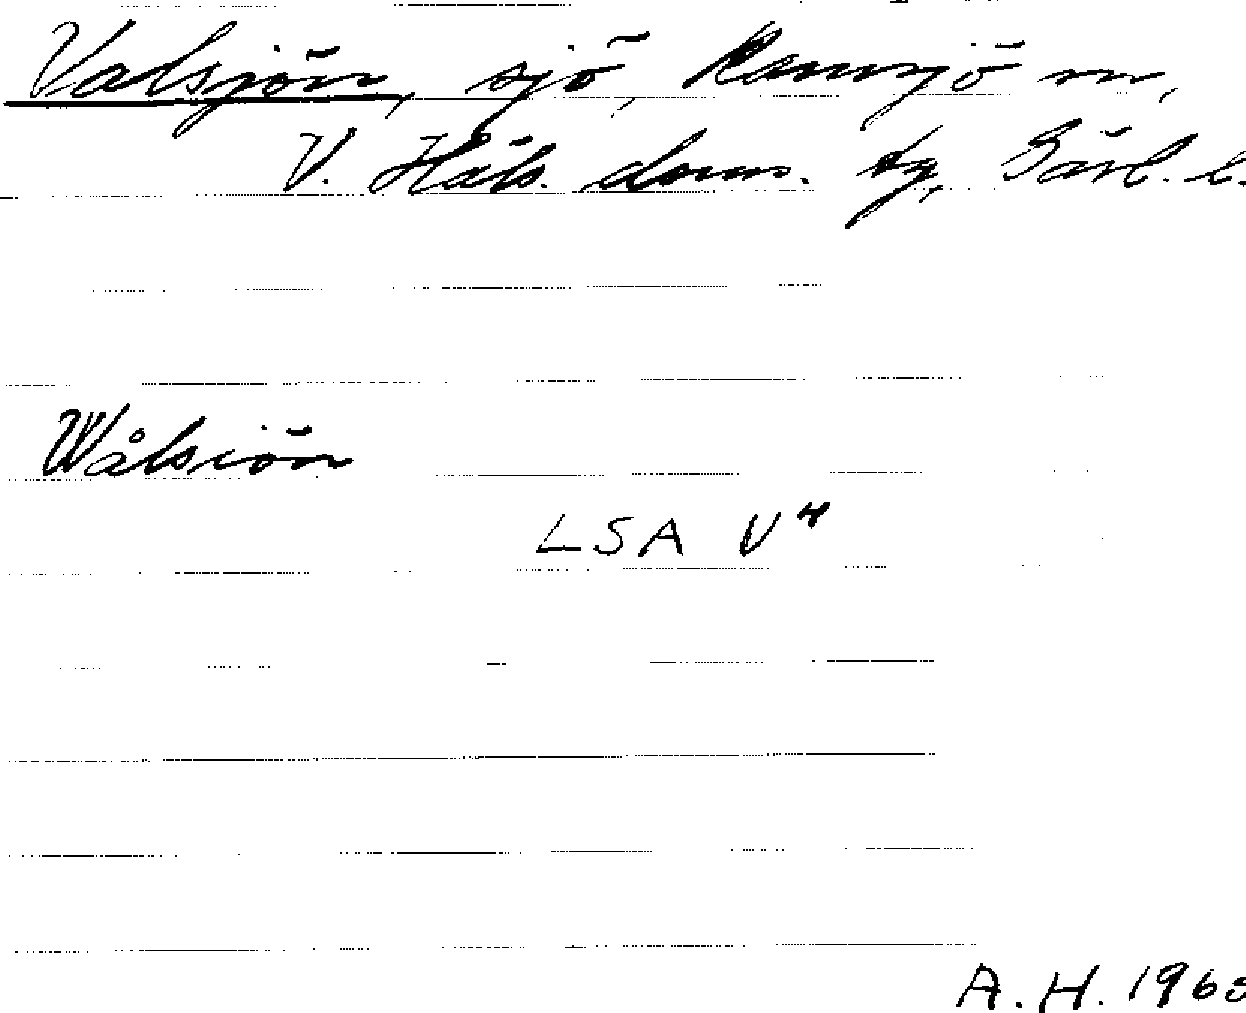 Valsjön, sjö, Ramsjö sn,
V. Häls. doms. tg, Gävl. l.
Wålsiön
LSA V4
A.H. 1965